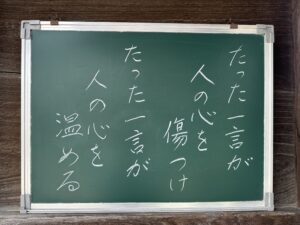 たった一言が
人の心を
傷つけ
たった一言が
人の心を
温める